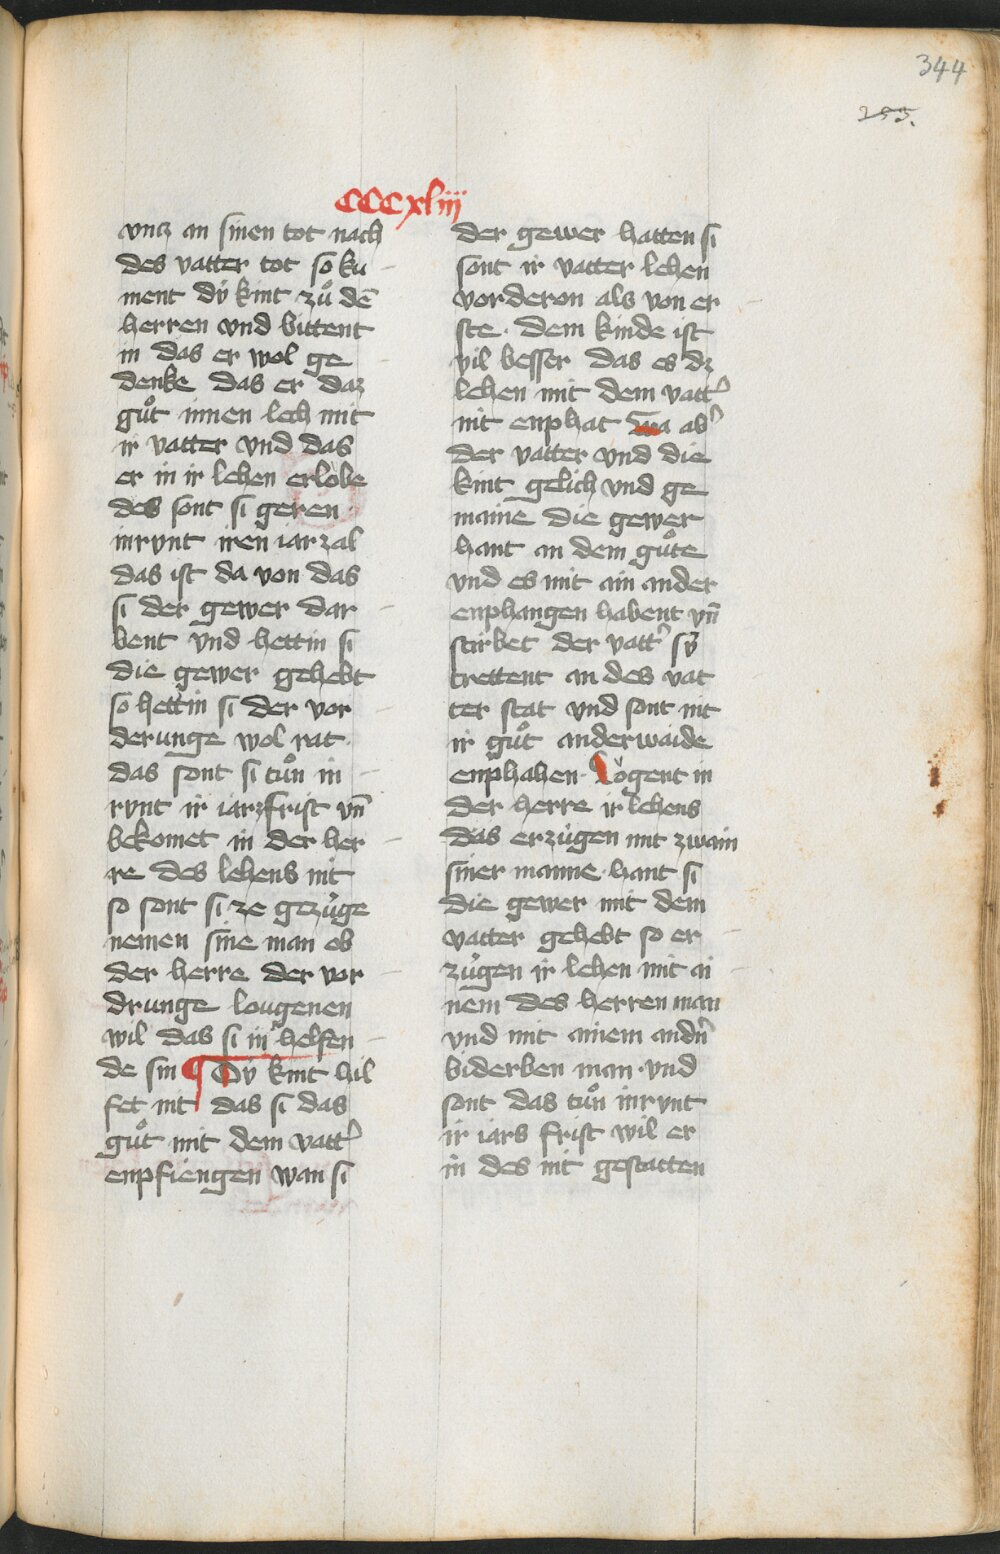 344
253.
CCCxliij
vncz an sinen tot nach
des vatter tot so ku
ment dÿ kint zuͦ dē
herren vnd bittent
in das er wol ge
denke das er daz
guͦt innen lech mit
ir vatter vnd das
er in ir lehen erlobe
des sont si geren
inrynt iren iarzal
das ist da von das
si der gewer dar
bent vnd hettin si
die gewer gehebt
so hettin si der vor
derunge wol rat
das sont si tuͦn in
rynt ir iarzfrist vn̄
bekomet in der her
re des lehens nit
so sont si ze gezúge
nemen sine man ob
der herre der vor
drunge lougenen
wil das si in helfen
de sin ¶ Dÿ kint hil
fet nit das si das
guͦt mit dem vatt᾽
enpfiengen wan si
der gewer hatten si
sont ir vatter lehen
vorderon als von er
ste. dem kinde ist
vil besser das es dz
lehen mit dem vatt᾽
nit enphat wa ab᾽
der vatter vnd die
kint gelich vnd ge
maine die gewer
hant an dem guͦte
vnd es mit ain ander
enphangen habent vn̄
stirbet der vatt᾽ sÿ
trettent an des vat
ter stat vnd sont nit
ir guͦt anderwaide
enphahen. Logent in
der herre ir lehens
das erzúgen mit zwain
siner manne. hant si
die gewer mit dem
vatter gehebt so er
zúgen ir lehen mit ai
nem des herren man
vnd mit ainem andn᾽
biderben man. vnd
sont das tuͦn inrynt
ir iars frist wil er
in des nit gestatten